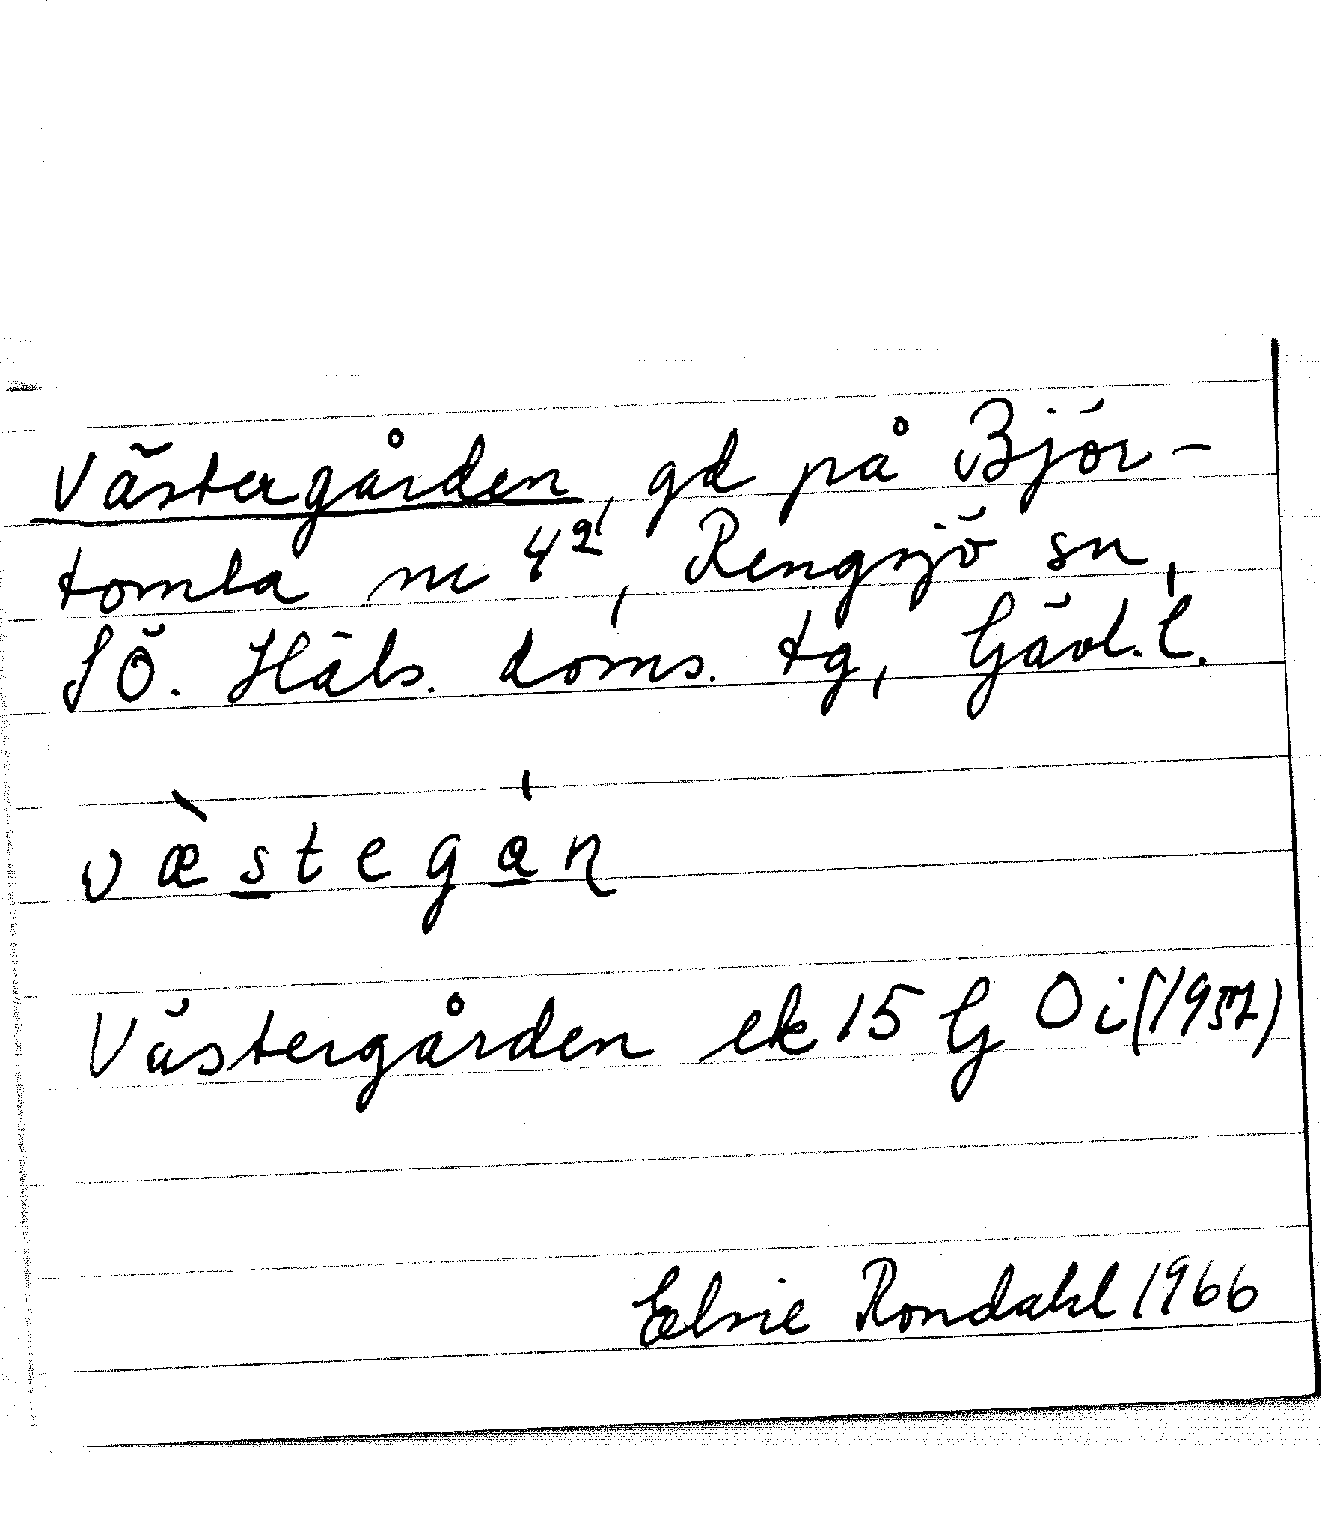 Västergården, gd på Björ-
tomta nr 4², Rengsjö sn,
SÖ. Häls. doms. tg, Gävl. l.
væ̀stegán
Västergården ek 15 G 0 i (1957)
Elsie Rondahl 1966